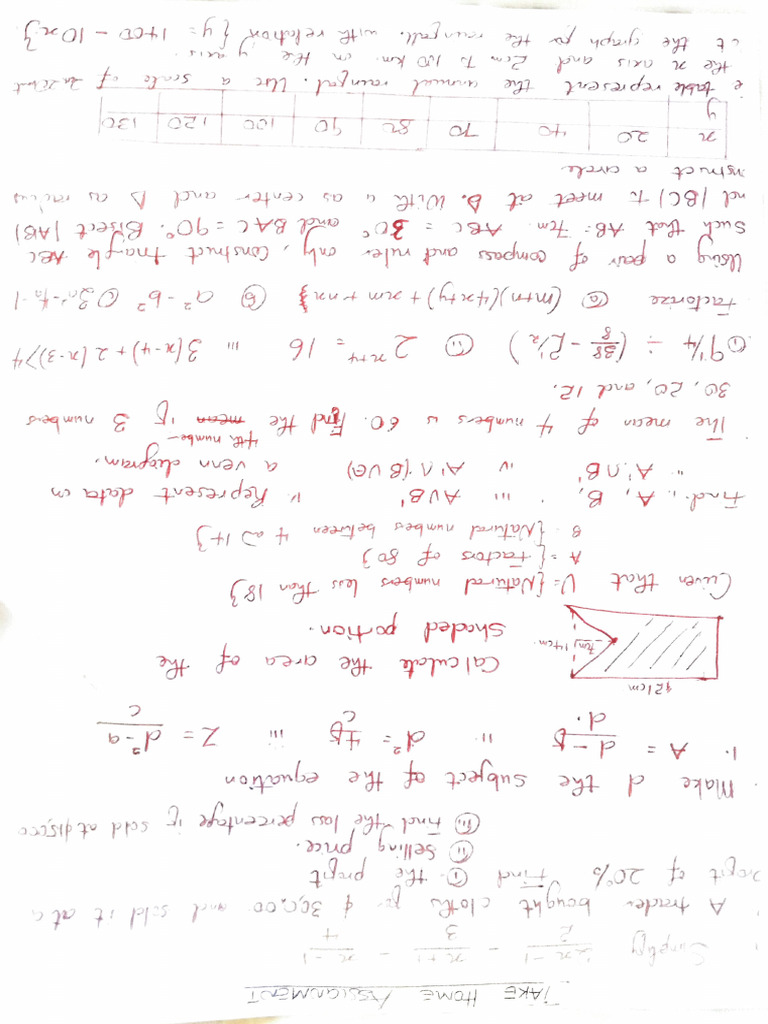 TAKE HOME ASSIGNMENT
Simplify 2x-1/2 - x+1/3 - x-1/4
A trader bought cloths for ¢ 300.00 and sold it at a
profit of 20% Find (i) the profit
(ii) Selling price.
(iii) Find the loss percentage if sold at
Make d the subject of the equation
1. A = d-b/d. ii d² = 4b/c iii Z = d²-a/c
421cm
7cm 14cm
Calculate the area of the
shaded portion.
Given that U={Natural numbers less than 18}
A = {Factors of 80}
B {Natural numbers between 4 and 14}
Find i. A, B, iii A∪B' v. Represent data in
ii A'∩B' iv A'∩(B∪A) a venn diagram.
4th number
The mean of 4 numbers is 60. Find the mean if 3 numbers
30, 20, and 12.
(i) 9 1/4 ÷ (38/8 - 2 1/2) (ii) 2^x+4 = 16 iii 3(x-4)+2(x-3)>4
Factorize (a) (m+n)(4x+y)+xm+nx} (b) a²-b² (c) 3n²-4n-1
Using a pair of compass and ruler only, construct triangle ABC
such that AB= 7cm ABC = 30° and BAC = 90°. Bisect |AB|
nd |BC| to meet at D. With D as center and as radius
nstruct a circle
x 20 40 70 80 90 100 120 130
y
e table represent the annual rainfall. Use a scale of 2cm
the x axis and 2cm to 100 km. on the y axis.
ct the graph for the rainfall. with relation {y = 1400 - 10x}